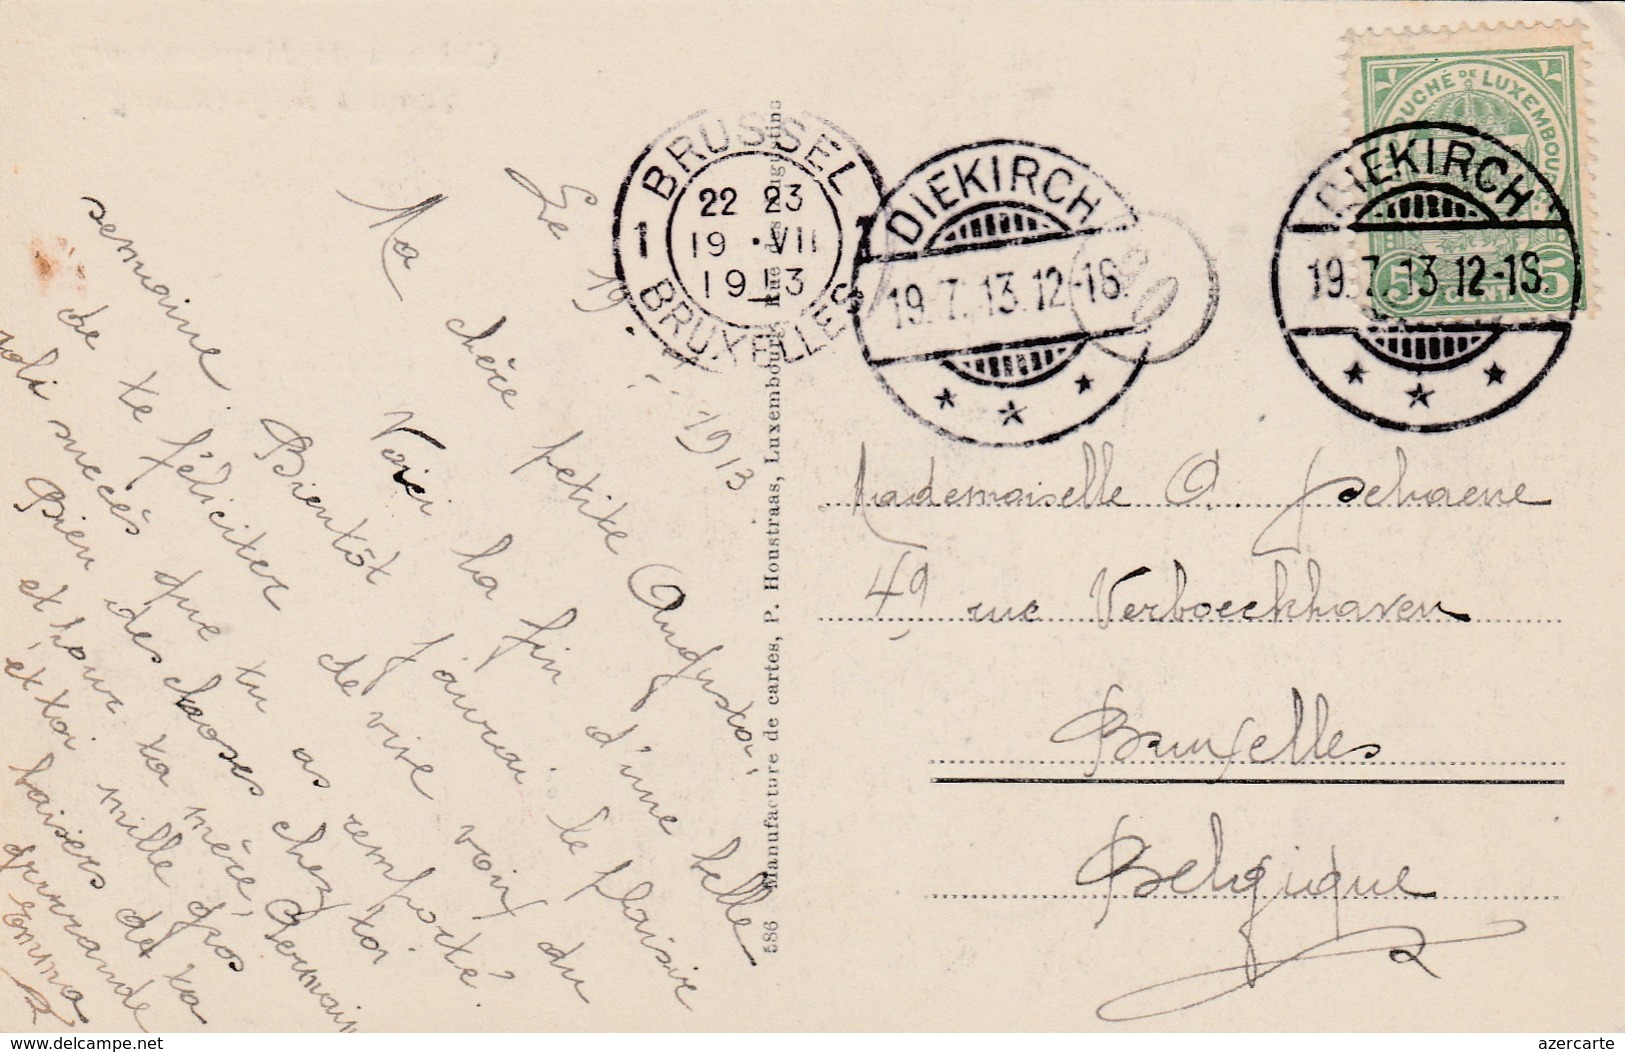 Le 19. - . 1913
Ma chère petite Augusta,
Voici la fin d'une belle
semaine. Bientôt j'aurai le plaisir
de te féliciter de vive voix du
joli succès que tu as remporté.
Bien des choses chez toi
et pour ta mère, Germaine
et toi mille gros
baisers de ta
grande
Emma
586 Manufacture de cartes, P. Houstraas, Luxembourg, Rue des Augustins
1 BRUSSEL 1
22 23
19 · VII
1913
BRUXELLES
DIEKIRCH
19. 7. 13. 12-1S.
20
GRAND DUCHÉ DE LUXEMBOURG
5 CENT. 5
DIEKIRCH
19. 7. 13. 12-1S.
Mademoiselle A.
49 rue Verboeckhaven
Bruxelles
Belgique
www.delcampe.net
azercarte